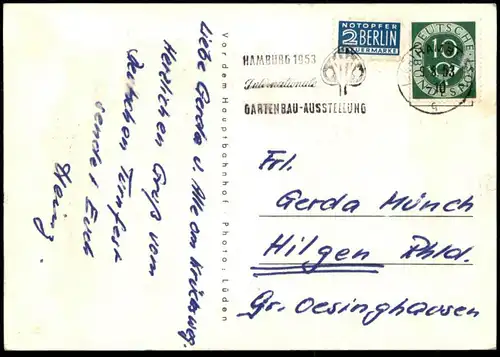 Liebe Gerda u. Alle am Krückweg.
Herzlichen Gruß vom
Deutschen Turnfest
sendet Euch
Heinz.
Vor dem Hauptbahnhof Photo: Lüden
NOTOPFER
2 BERLIN
STEUERMARKE
HAMBURG 1953
Internationale
GARTENBAU-AUSSTELLUNG
DEUTSCHE
BUNDESPOST
Frl.
Gerda Münch
Hilgen Rhld.
Gr. Oesinghausen